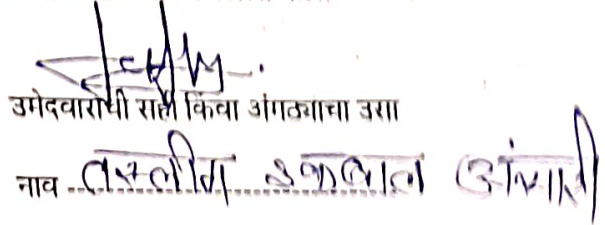 उमेदवाराची सही किंवा अंगठ्याचा ठसा
नाव तस्लीम इकबाल अंसारी